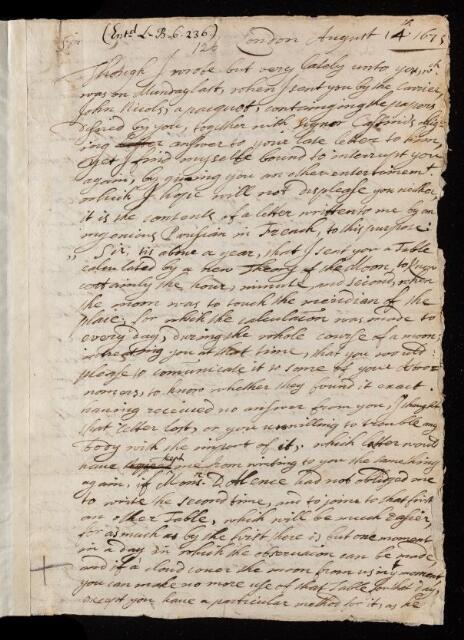 (Entd L-B-6-236)
126
London August 14th 1675
Sir
Though I wrote but very lately unto you, wch
was on Munday last, when I sent you by the Carrier
John Nicols, a pacquet, containing the papers
desired by you, together with Signor Cassini's oblig
ing answer to your late letter to him;
yet I find myselfe bound to interrupt you
again, by giving you an other entertainment,
which I hope will not displease you neither;
it is the contents of a letter written to me by an
ingenious Parisian in French, to this purpose:
„ Sir, tis above a year, that I sent you a Table
calculated by a new Theory of the Moon, to know
certainly the hour, minute, and second, when
the moon was to touch the meridian of the
place, for which the calculation was made to
every day, during the whole course of a moon
you at that time, that you would
please to communicate it to some of your Astro-
nomers, to know whether they found it exact.
having received no answer from you, I thought
that letter lost, or you unwilling to trouble any
body with the import of it; which latter would
have kept me from writing to you the same thing
again, if Monsr. had not obliged me
to write the second time, and to joine to that first
an other Table, which will be much easier,
for as much as by the first there is but one moment
in a day, in which the observation can be made,
and if a cloud cover the moon from us in yt moment
you can make no more use of that Table for that day,
except you have a particular method for it, as he